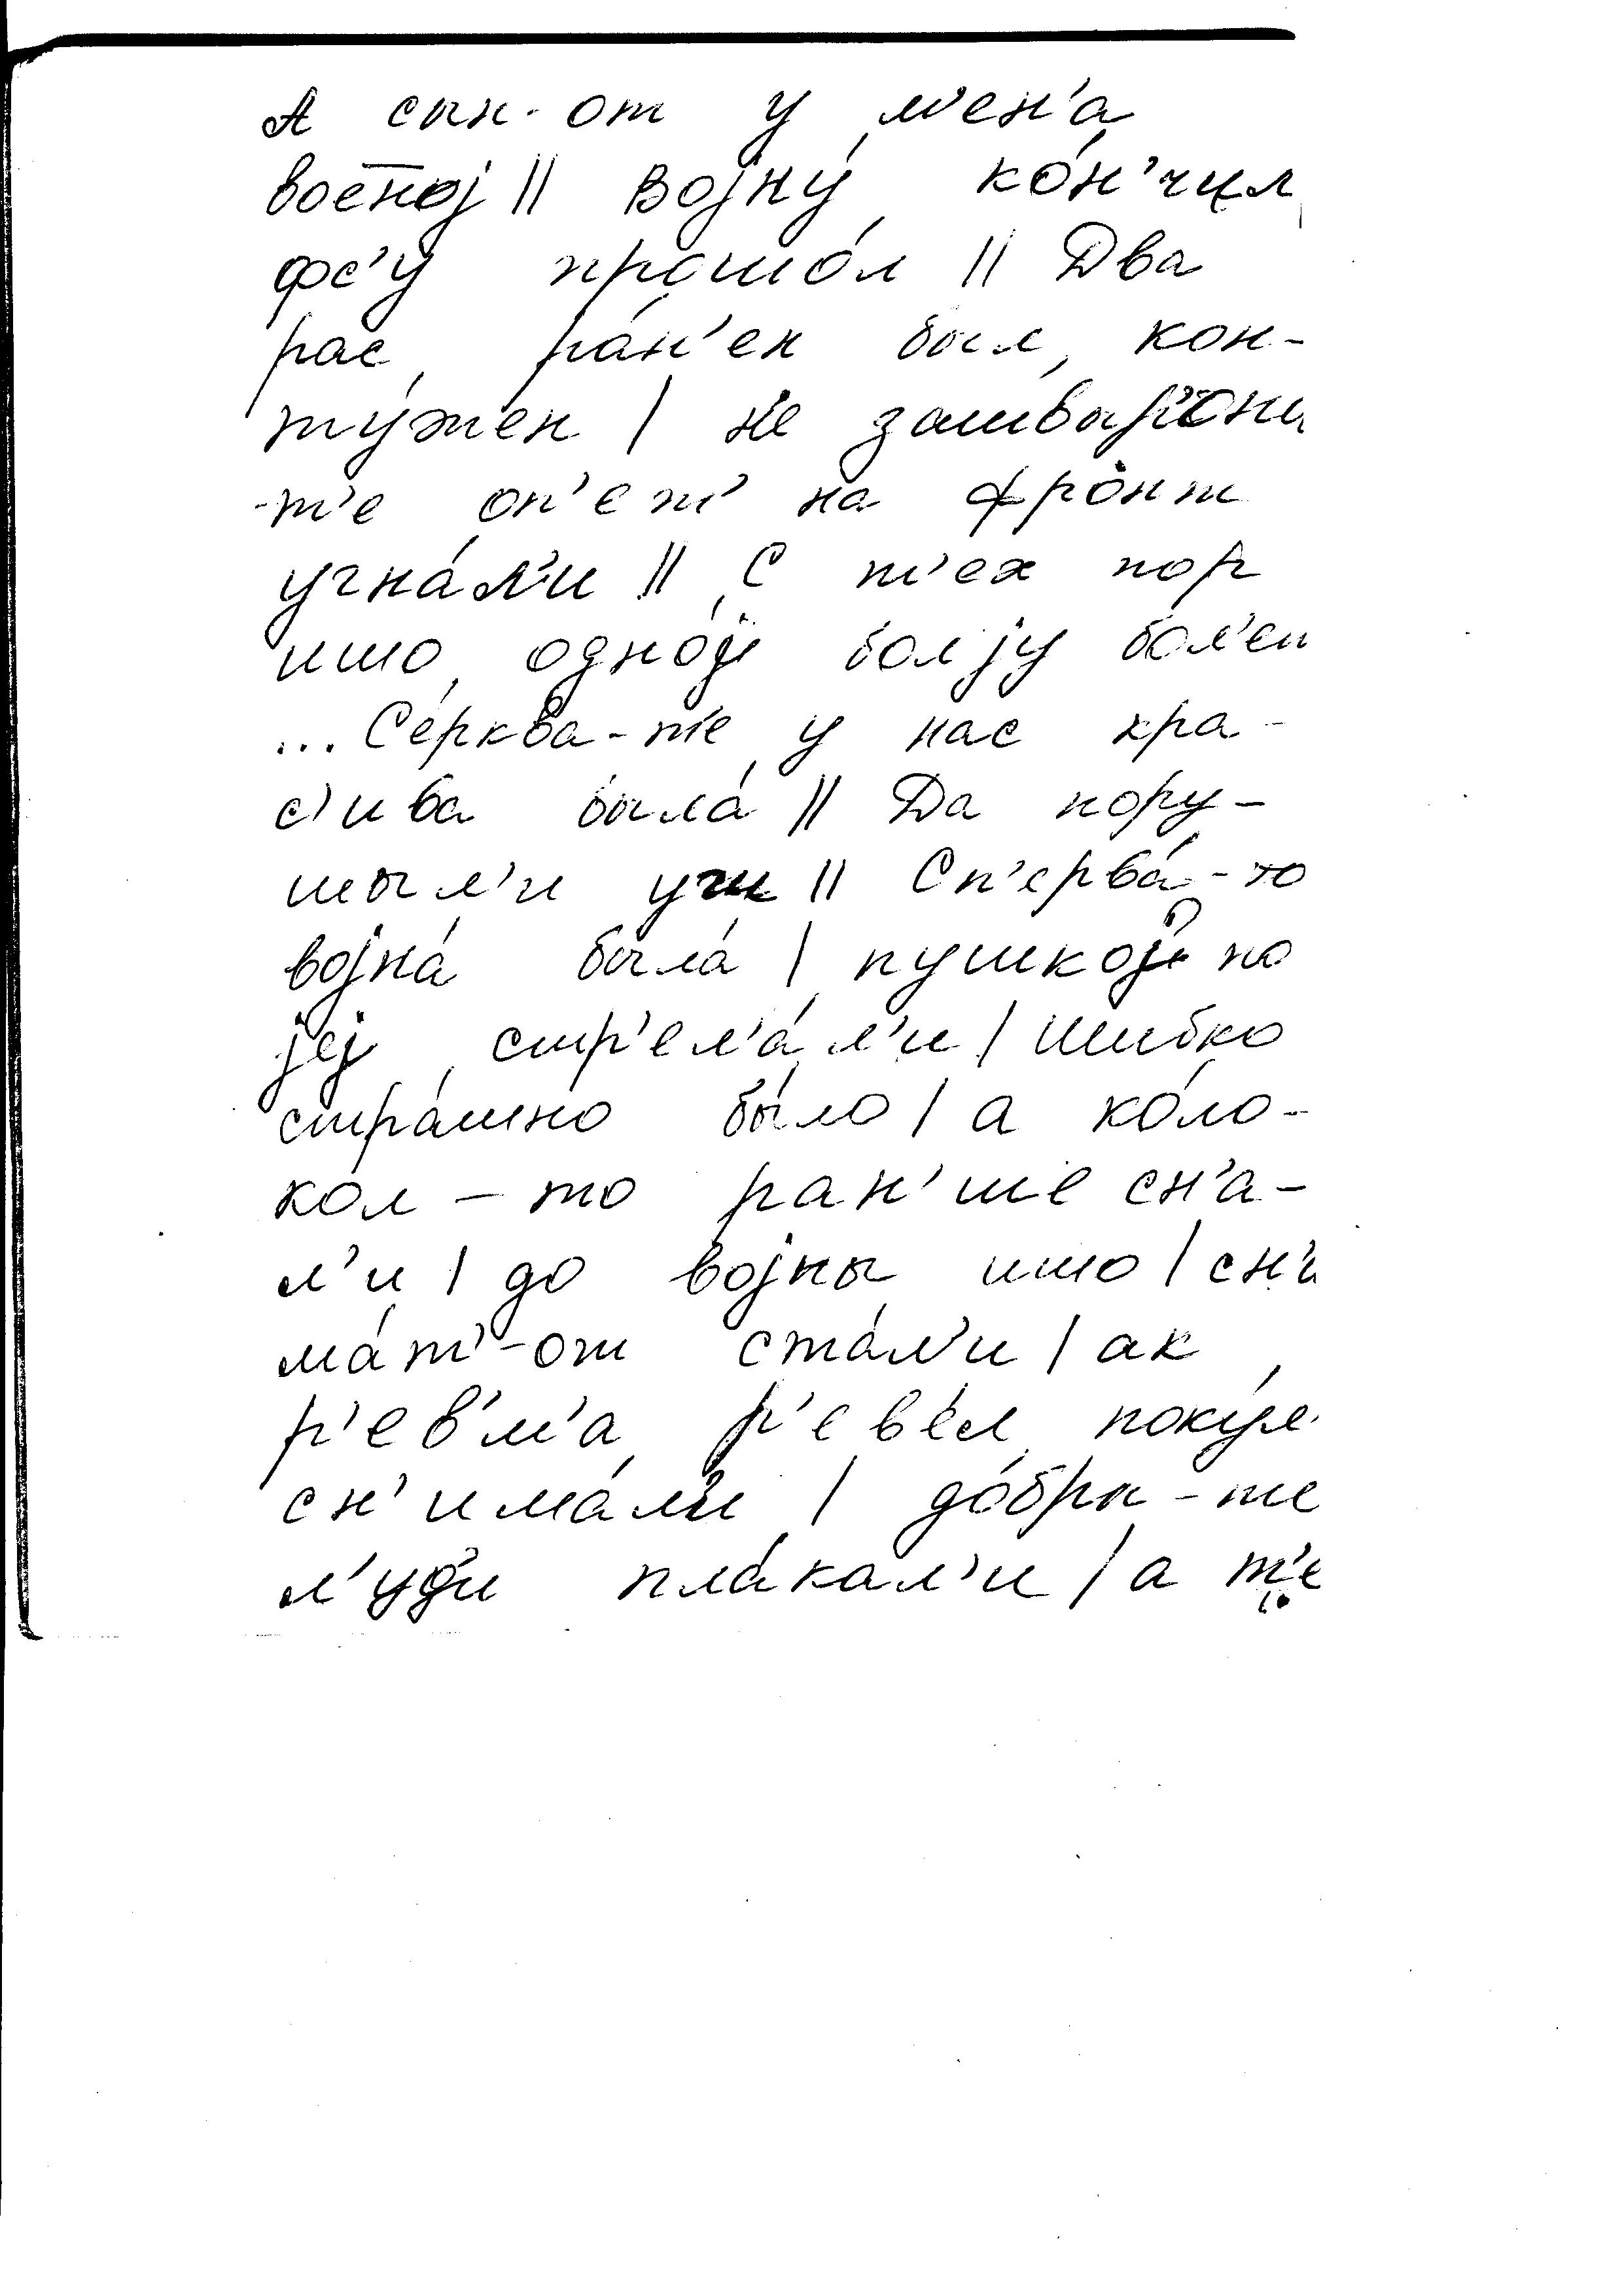 А сын-от у м'ен'а́
вое̄ној || војну́ ко́н'чил
фс'у прошо́л || Два
рас ра́н'ен был, кон-
ту́жен | н'е затвор'о́ны
-т'е оп'е́т' на фронт
угна́л'и || С т'ех пор
ишо одно́ј бол'ју бол'еи
... Се́рква-т'е у нас кра-
с'и́ва была́ || Да пору-
шыл'и уш || Сп'ерва́-то
војна́ была́ | пушкој по
јеј стр'ел'а́л'и | шибко
стра́шно бы́ло | а ко́ло-
кол-то ран'ше сн'а-
л'и | до војны ишо | сн'и
ма́т'-от ста́л'и | ак
р'ев'м'а́ р'ев'е́л поку́л'
сн'има́л'и | до́бры-те
л'уд'и пла́кал'и | а т'е